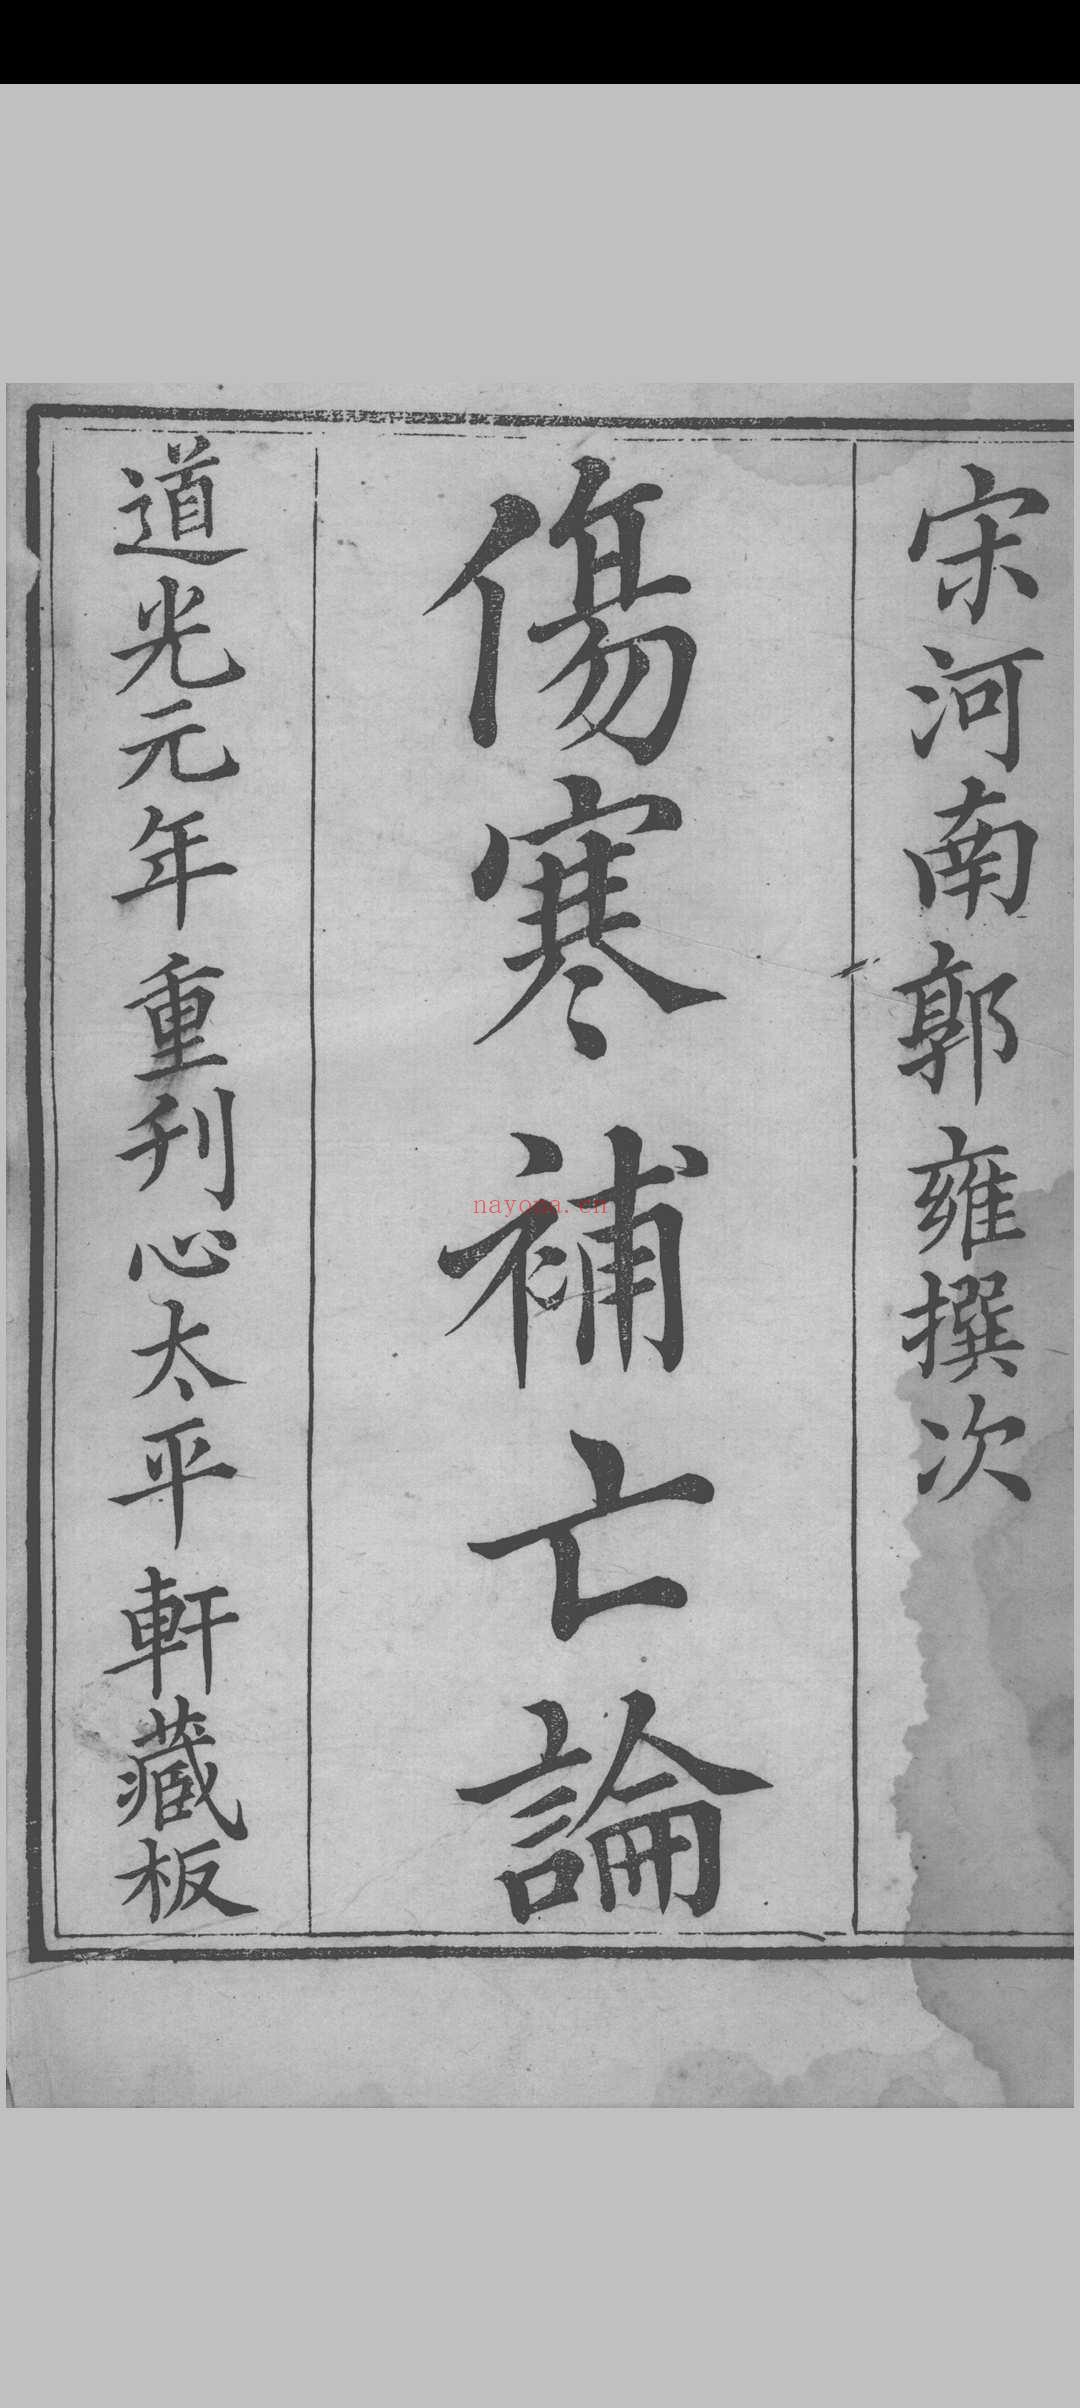 宋河南郭雍撰次
傷寒補亡論
道光元年重刊心太平軒藏板
nayona.cn